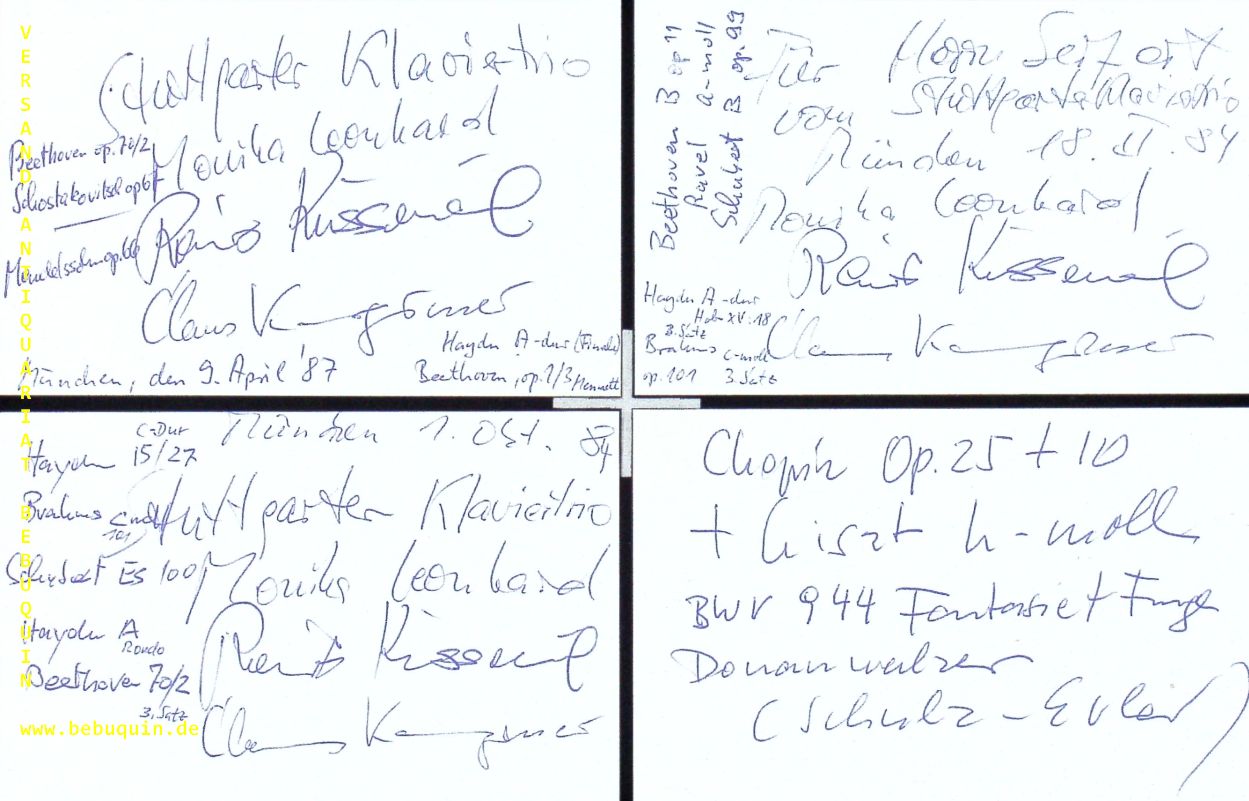 VERSANDANTIQUARIAT BEBUQUIN
Stuttgarter Klaviertrio
Monika Leonhard
Beethoven op.70/2
Schostakovitsch op 67
Rainer Kussmaul
Mendelssohn op. 66
Claus Kanngiesser
Haydn A-dur (Finale)
München, den 9. April '87
Beethoven, op.1/3 Menuett
Beethoven B op 11
Ravel a-moll
Schubert B op. 99
Für Herrn Seifert
vom Stuttgarter Klaviertrio
München 18. II. 84
Monika Leonhard
Rainer Kussmaul
Haydn A-dur
Hob XV:18
3. Satz
Claus Kanngiesser
Brahms c-moll
op. 101 3. Satz
München 1. Okt. 84
C-Dur
Haydn 15/27
Stuttgarter Klaviertrio
Brahms c-moll
101
Schubert Es 100
Monika Leonhard
Haydn A
Rondo
Rainer Kussmaul
Beethoven 70/2
3. Satz
Claus Kanngiesser
www.bebuquin.de
Chopin Op. 25 + 10
+ Liszt h-moll
BWV 944 Fantasie + Fuge
Donauwalzer
(Schulz-Evler)